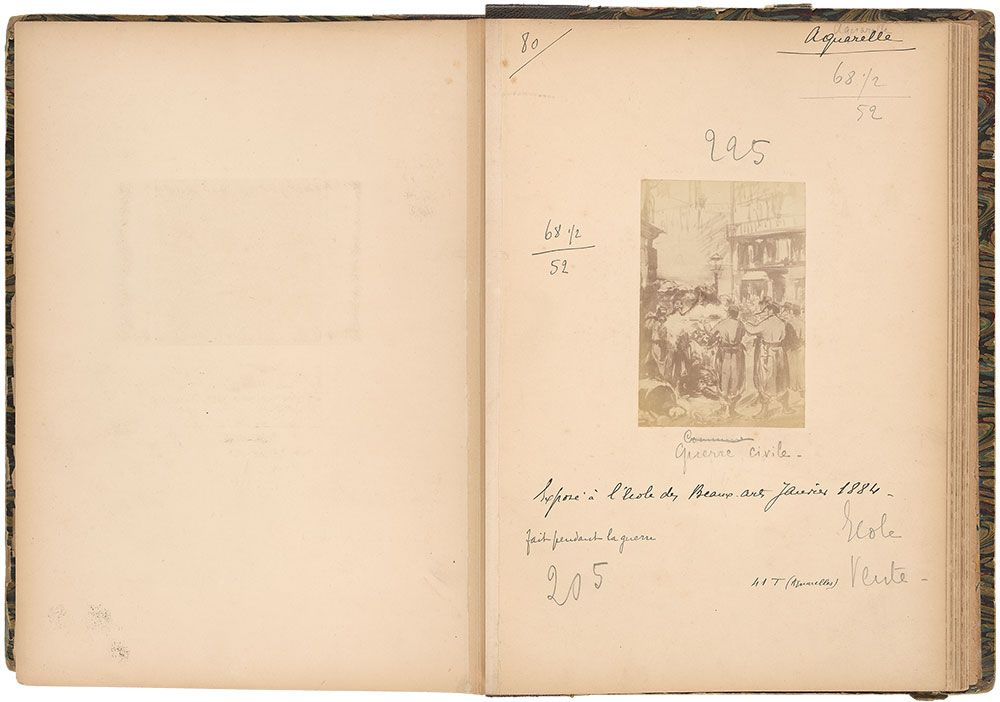 80
Aquarelle
68 1/2
52
225
68 1/2
52
Commune
Guerre civile -
Exposé à l'école des Beaux-arts Janvier 1884 -
fait pendant la guerre
Ecole
205
41 T (Aquarelles) Vente -